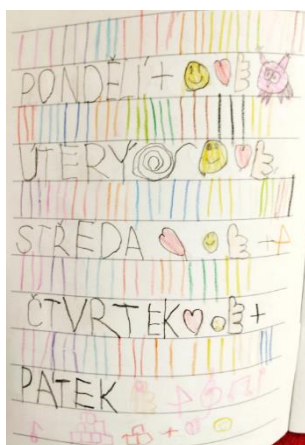 PONDĚLÍ +
ÚTERÝ
STŘEDA
ČTVRTEK +
PATEK
+